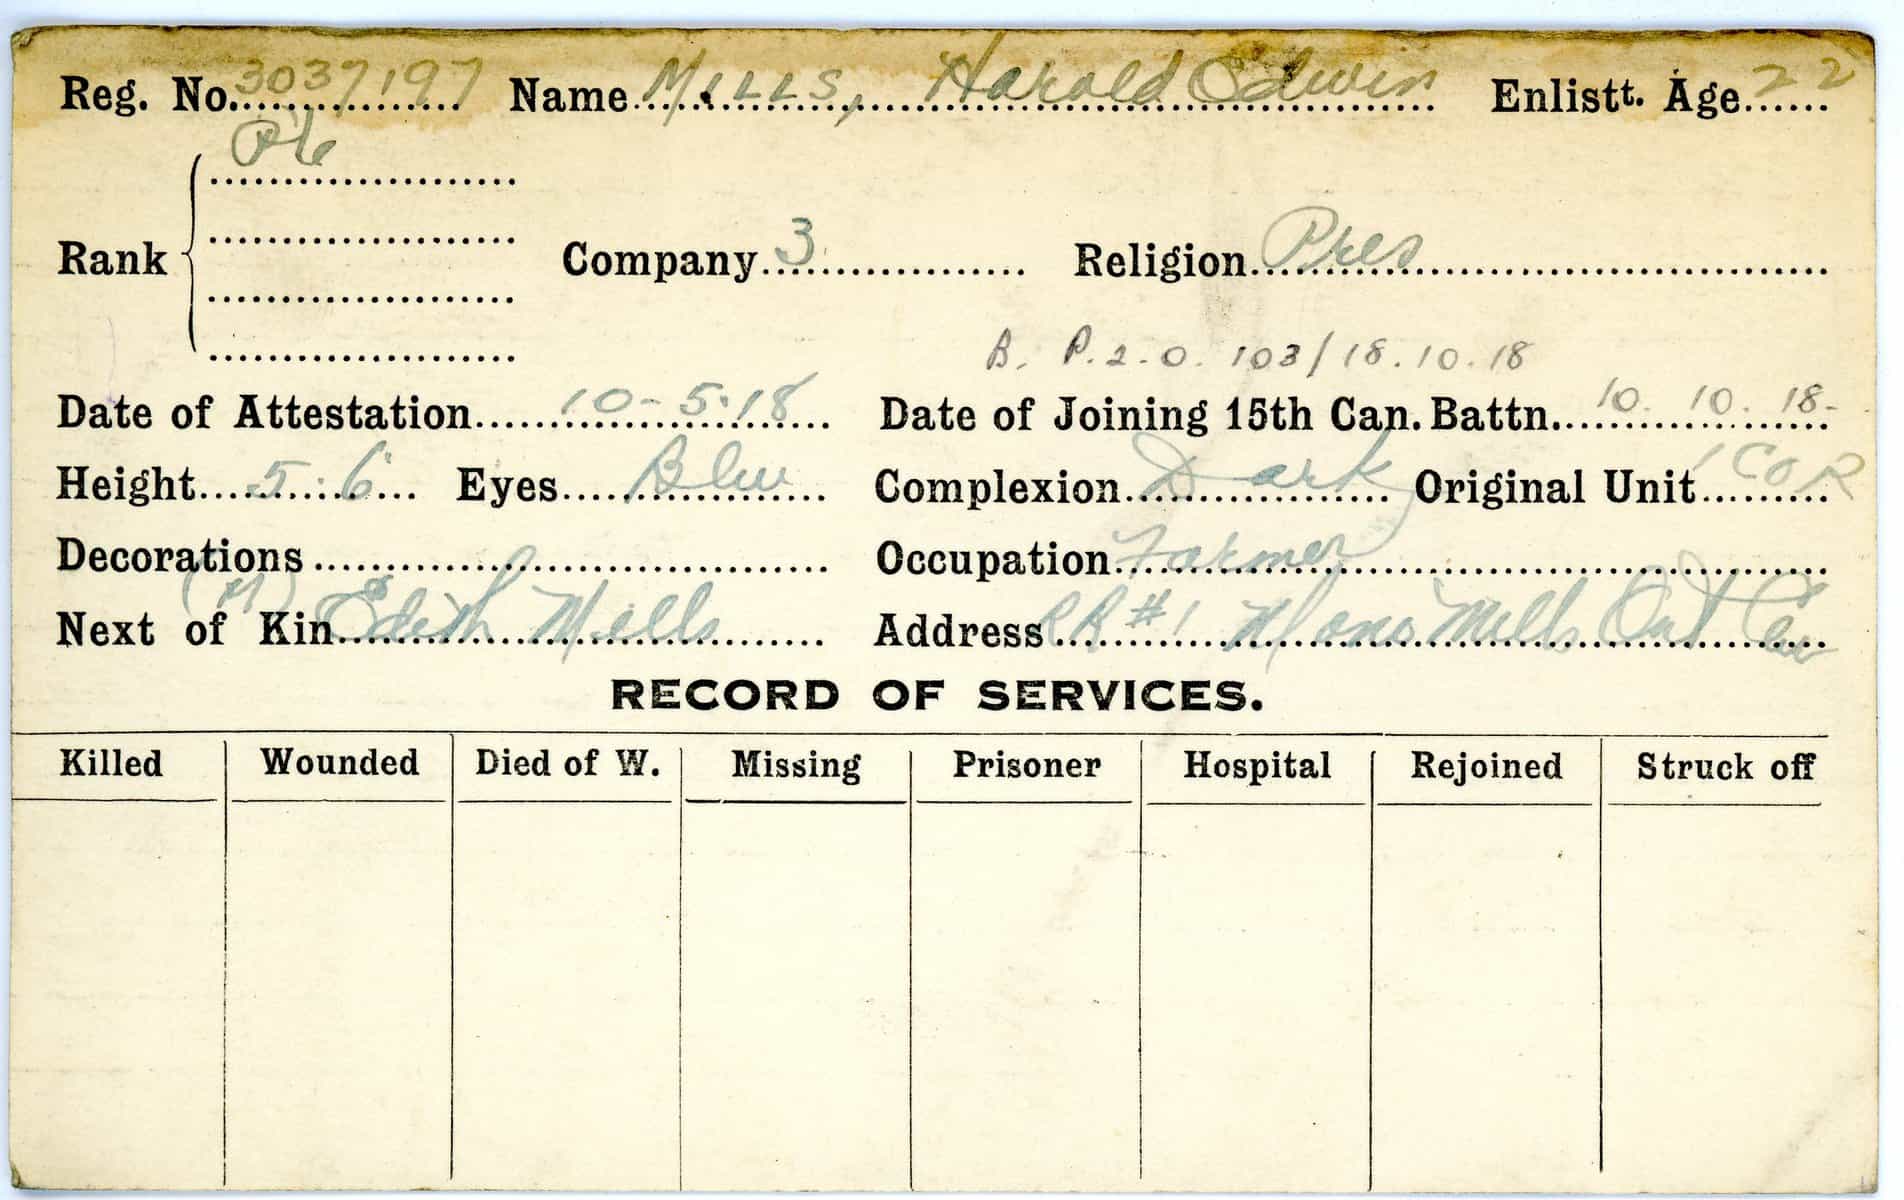 Reg. No. 3037197 Name MILLS, Harold Edwin Enlistt. Age 22
Pte
Rank Company 3 Religion Pres
B. P.2.O. 103/18.10.18
Date of Attestation 10-5-18 Date of Joining 15th Can. Battn. 10. 10. 18-
Height 5.6 Eyes Blue Complexion Dark Original Unit 1 COR
Decorations Occupation Farmer
(M)
Next of Kin Edith Mills Address RR #1 Mono Mills Ont Can
RECORD OF SERVICES.
Killed Wounded Died of W. Missing Prisoner Hospital Rejoined Struck off